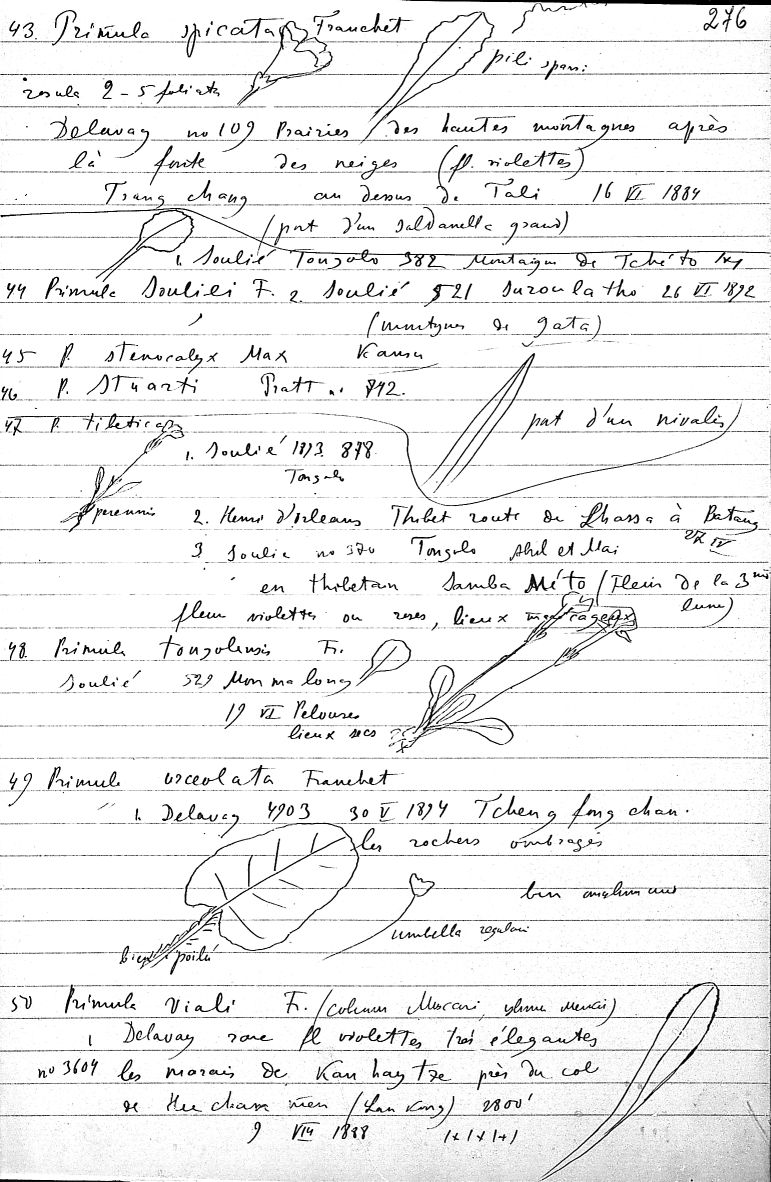 276
43. Primula spicata Franchet
pili sparsi
rosula 2 - 5 foliata
Delavay no 109 Prairies des hautes montagnes après
là fonte des neiges (fl. violettes)
Tsang chang au dessus de Tali 16 VI 1884
(port d'un Soldanella grand)
1. Soulié Tongolo 382 Montagne de Tchéto
44 Primula Souliei F. 2. Soulié 521 Suroulatho 26 VI 1892
(montagnes de gata)
45 P. stenocalyx Max Kansu
46 P. Stuarti Pratt n. 842.
47 P. tibetica
port d'un nivalis)
1. Soulié 1893. 878
Tongolo
perennis
2. Henri d'Orleans Thibet route de Lhassa à Batang
27 IV
3 Soulie no 370 Tongolo Abril et Mai
en thibetain Samba Méto (Fleur de la 3me
lune)
fleur violettes ou roses, lieux marécageux
48. Primula tongolensis Fr.
Soulié 529 Mon ma long
19 VI Pelouses
lieux secs
49 Primula urceolata Franchet
1. Delavay 4903 30 V 1894 Tcheng fong chan.
les rochers ombragés
umbella
Bien poilu
50 Primula Viali Fr. (column Muscari,
1 Delavay rare fl violettes très élegantes
no 3604 les marais de Kan hay tze près du col
de Hee chan men (Lan Kong) 2800'
9 VIII 1888 1+1+1+1